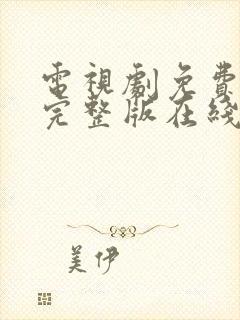 電視劇免費
完整版在綫
美伊